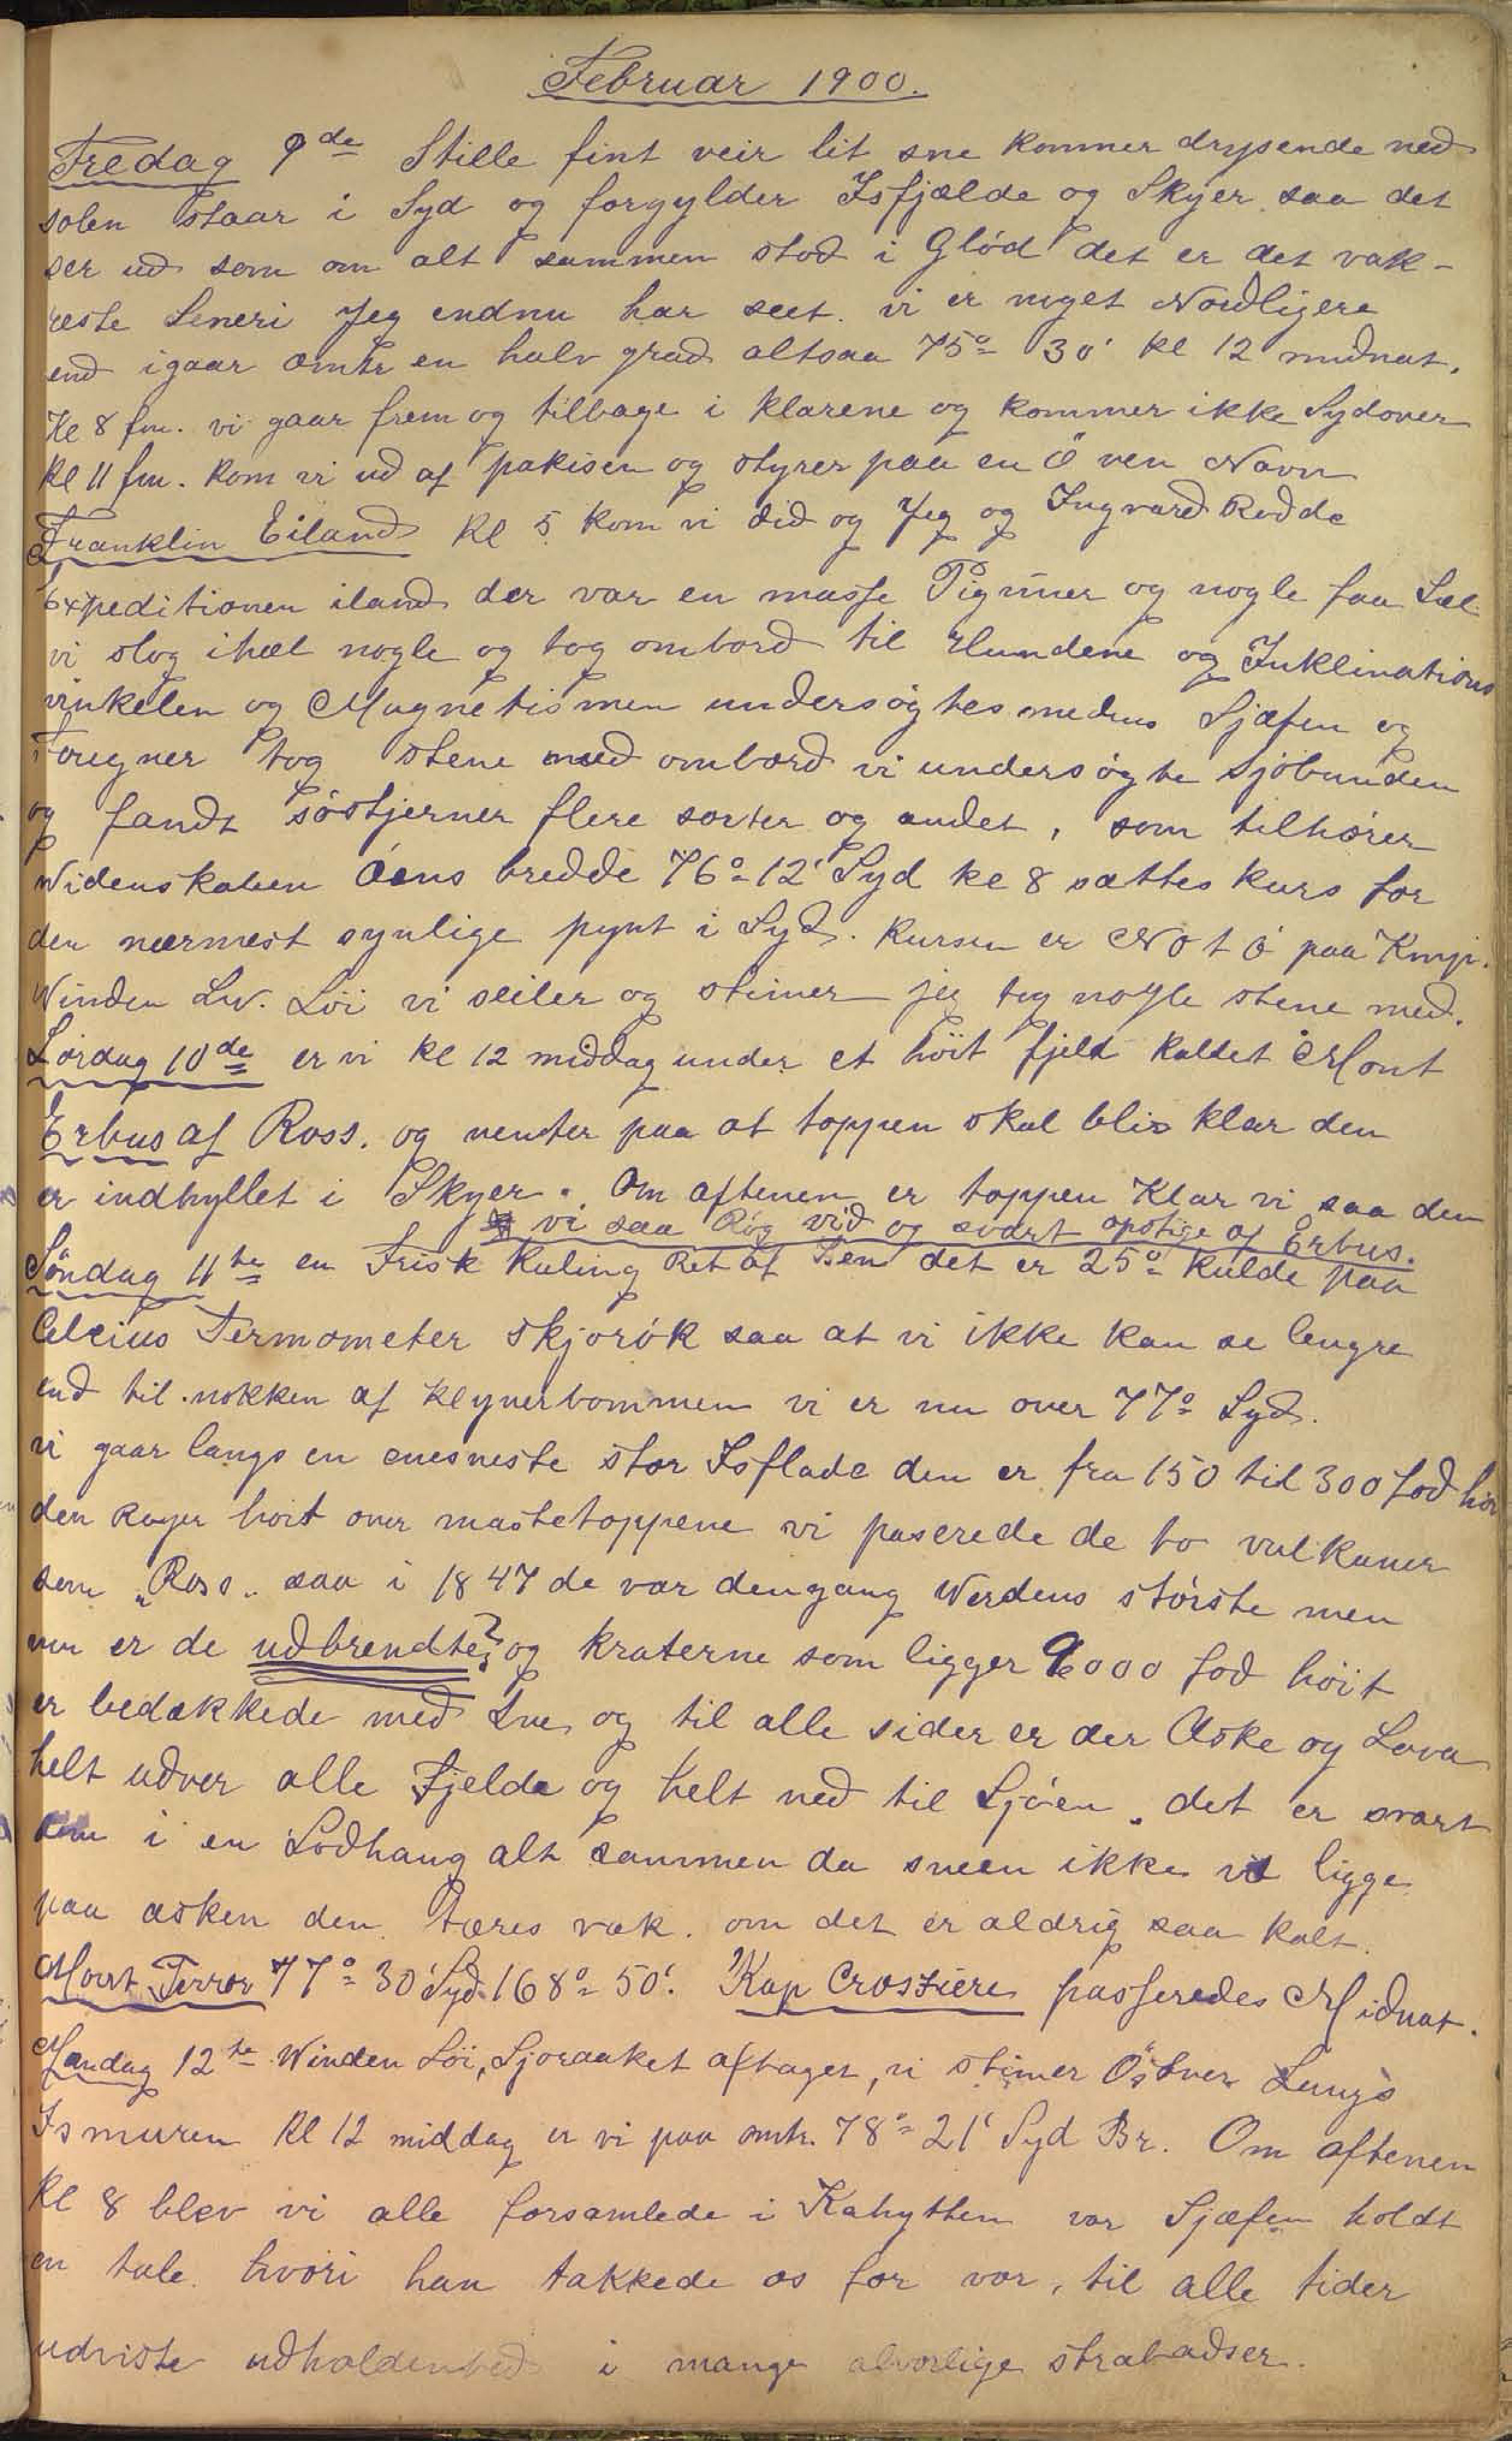 Februar 1900.
Fredag 9de Stille fint veir lit sne kommer drysende ned
solen staar i Syd og forgylder Isfjælde og Skyer saa det
ser ud som om alt sammen stod i Glöd det er det vak-
reste Seneri Jeg endnu har seet. vi er noget Nordligere
end igaar omtr en halv grad altsaa 75° 30' kl 12 midnat.
Kl 8 fm. vi gaar frem og tilbage i klarene og kommer ikke Sydover
kl 11 fm. kom vi ud af pakisen og styrer paa en Ö ven Navn
Franklin Eiland kl 5 kom vi did og Jeg og Ingvard Rodde
Expeditionen iland der var en masse Pigviner og nogle faa Sæl
vi slog ihæl nogle og tog ombord til Hundene og Inklinations
vinkelen og Magnetismen undersögtes medens Sjæfen og
Fougner tog stene med ombord vi undersögte Sjöbunden
og fandt söstjerner flere sorter og andet, som tilhörer
Widenskaben Öens bredde 76° 12' Syd kl 8 sattes kurs for
den nærmest synlige pynt i Syd. Kursen er NO t Ö paa Kmp.
Winden Lw. Löi vi seiler og stimer jeg tog nogle stene med.
Lördag 10de er vi kl 12 middag under et höit fjeld kaldet Mont
Erbus af Ross. og venter paa at toppen skal bliv klar den
er indhyllet i Skyer. Om aftenen er toppen Klar vi saa den
vi saa Rög vid og svart opstige af Erbus.
Söndag 11te en Frisk Kuling Ret af Isen det er 25° kulde paa
Celcius Termometer skjorök saa at vi ikke kan se lengre
end til nokken af klyverbommen vi er nu over 77° Syd.
vi gaar langs en enesneste stor Isflade den er fra 150 til 300 fod höi
den Rager höit over mastetoppene vi paserede de to vulkaner
som "Ross" saa i 1847 de var dengang Werdens störste men
nu er de udbrendte? og kraterne som ligger 9000 fod höit
er bedækkede med Sne, og til alle sider er der Aske og Lava
helt udver alle Fjelde og helt ned til Sjöen. det er svart
som i en Sodhaug alt sammen da sneen ikke vil ligge
paa asken den tæres væk. om det er aldrig saa kalt.
Mont Terror 77° 30' Syd 168° 50'. Kap Crosziere passeredes Midnat.
Mandag 12te Winden Löi, Sjoraaket aftager, vi stimer Östver Langs
Ismuren Kl 12 middag er vi paa omtr. 78° 21' Syd Br. Om aftenen
Kl 8 blev vi alle forsamlede i Kahytten vor Sjæfen holdt
en tale hvori han takkede os for vor, til alle tider
udviste udholdenhed i mange alvorlige strabadser.